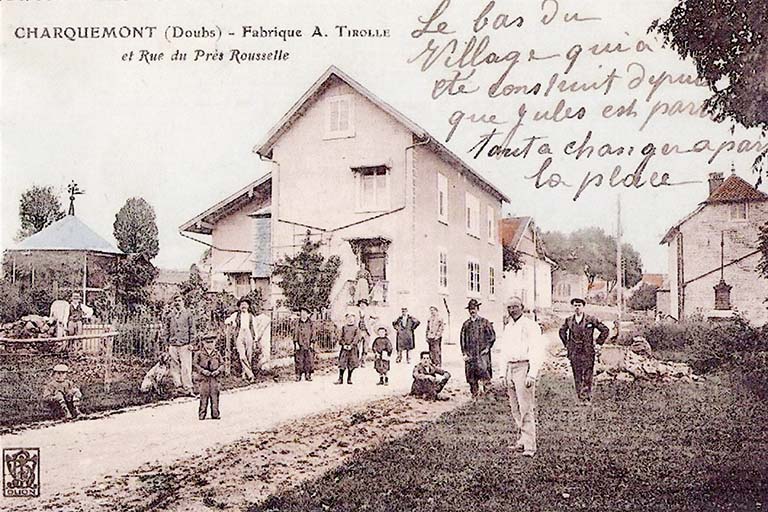 CHARQUEMONT (Doubs) - Fabrique A. TIROLLE
et Rue du Prés Rousselle
Le bas du
Village qui à
été construit depuis
que Jules est parti
tout a changer apart
la place
DIJON